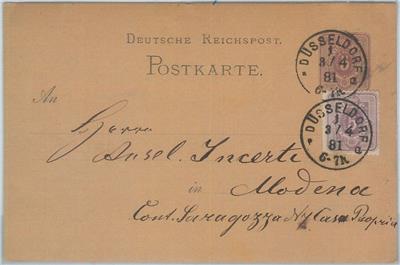 DEUTSCHE REICHSPOST.
POSTKARTE.
DÜSSELDORF
1
3/4
81
6-7N.
a
DÜSSELDORF
1
3/4
81
6-7N.
a
An
Herrn
Ansel. Incerti
in
Modena
Cont. Saragozza No Casa Propria